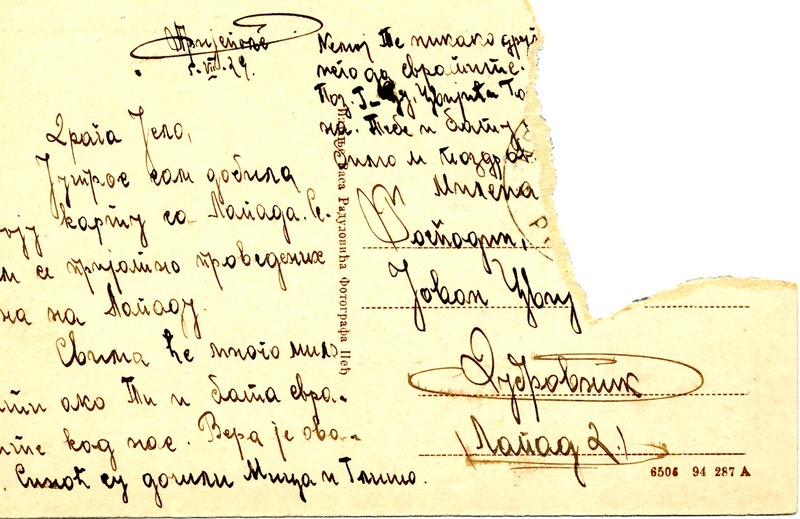 Пријепоље
5. VIII. 29.
Драга Јело,
Јутрос сам добила
карту са Лапада. Се-
м се пријатно проведених
на на Лападу.
Свима ће много мило
ити ако Ти и бата свра-
ите код нас. Вера је ова-
. Синоћ су дошли Мица и Глишо.
Немој Те никако друг
него да свратите.
Поз. Г-
на. Тебе и бату
мо и поздрав.
Милена
Издање Васа Радуловића Фотографа Пећ
Господин,
Јован Цвиј
Дубровник
Лапад 2.
6506 94 287 A